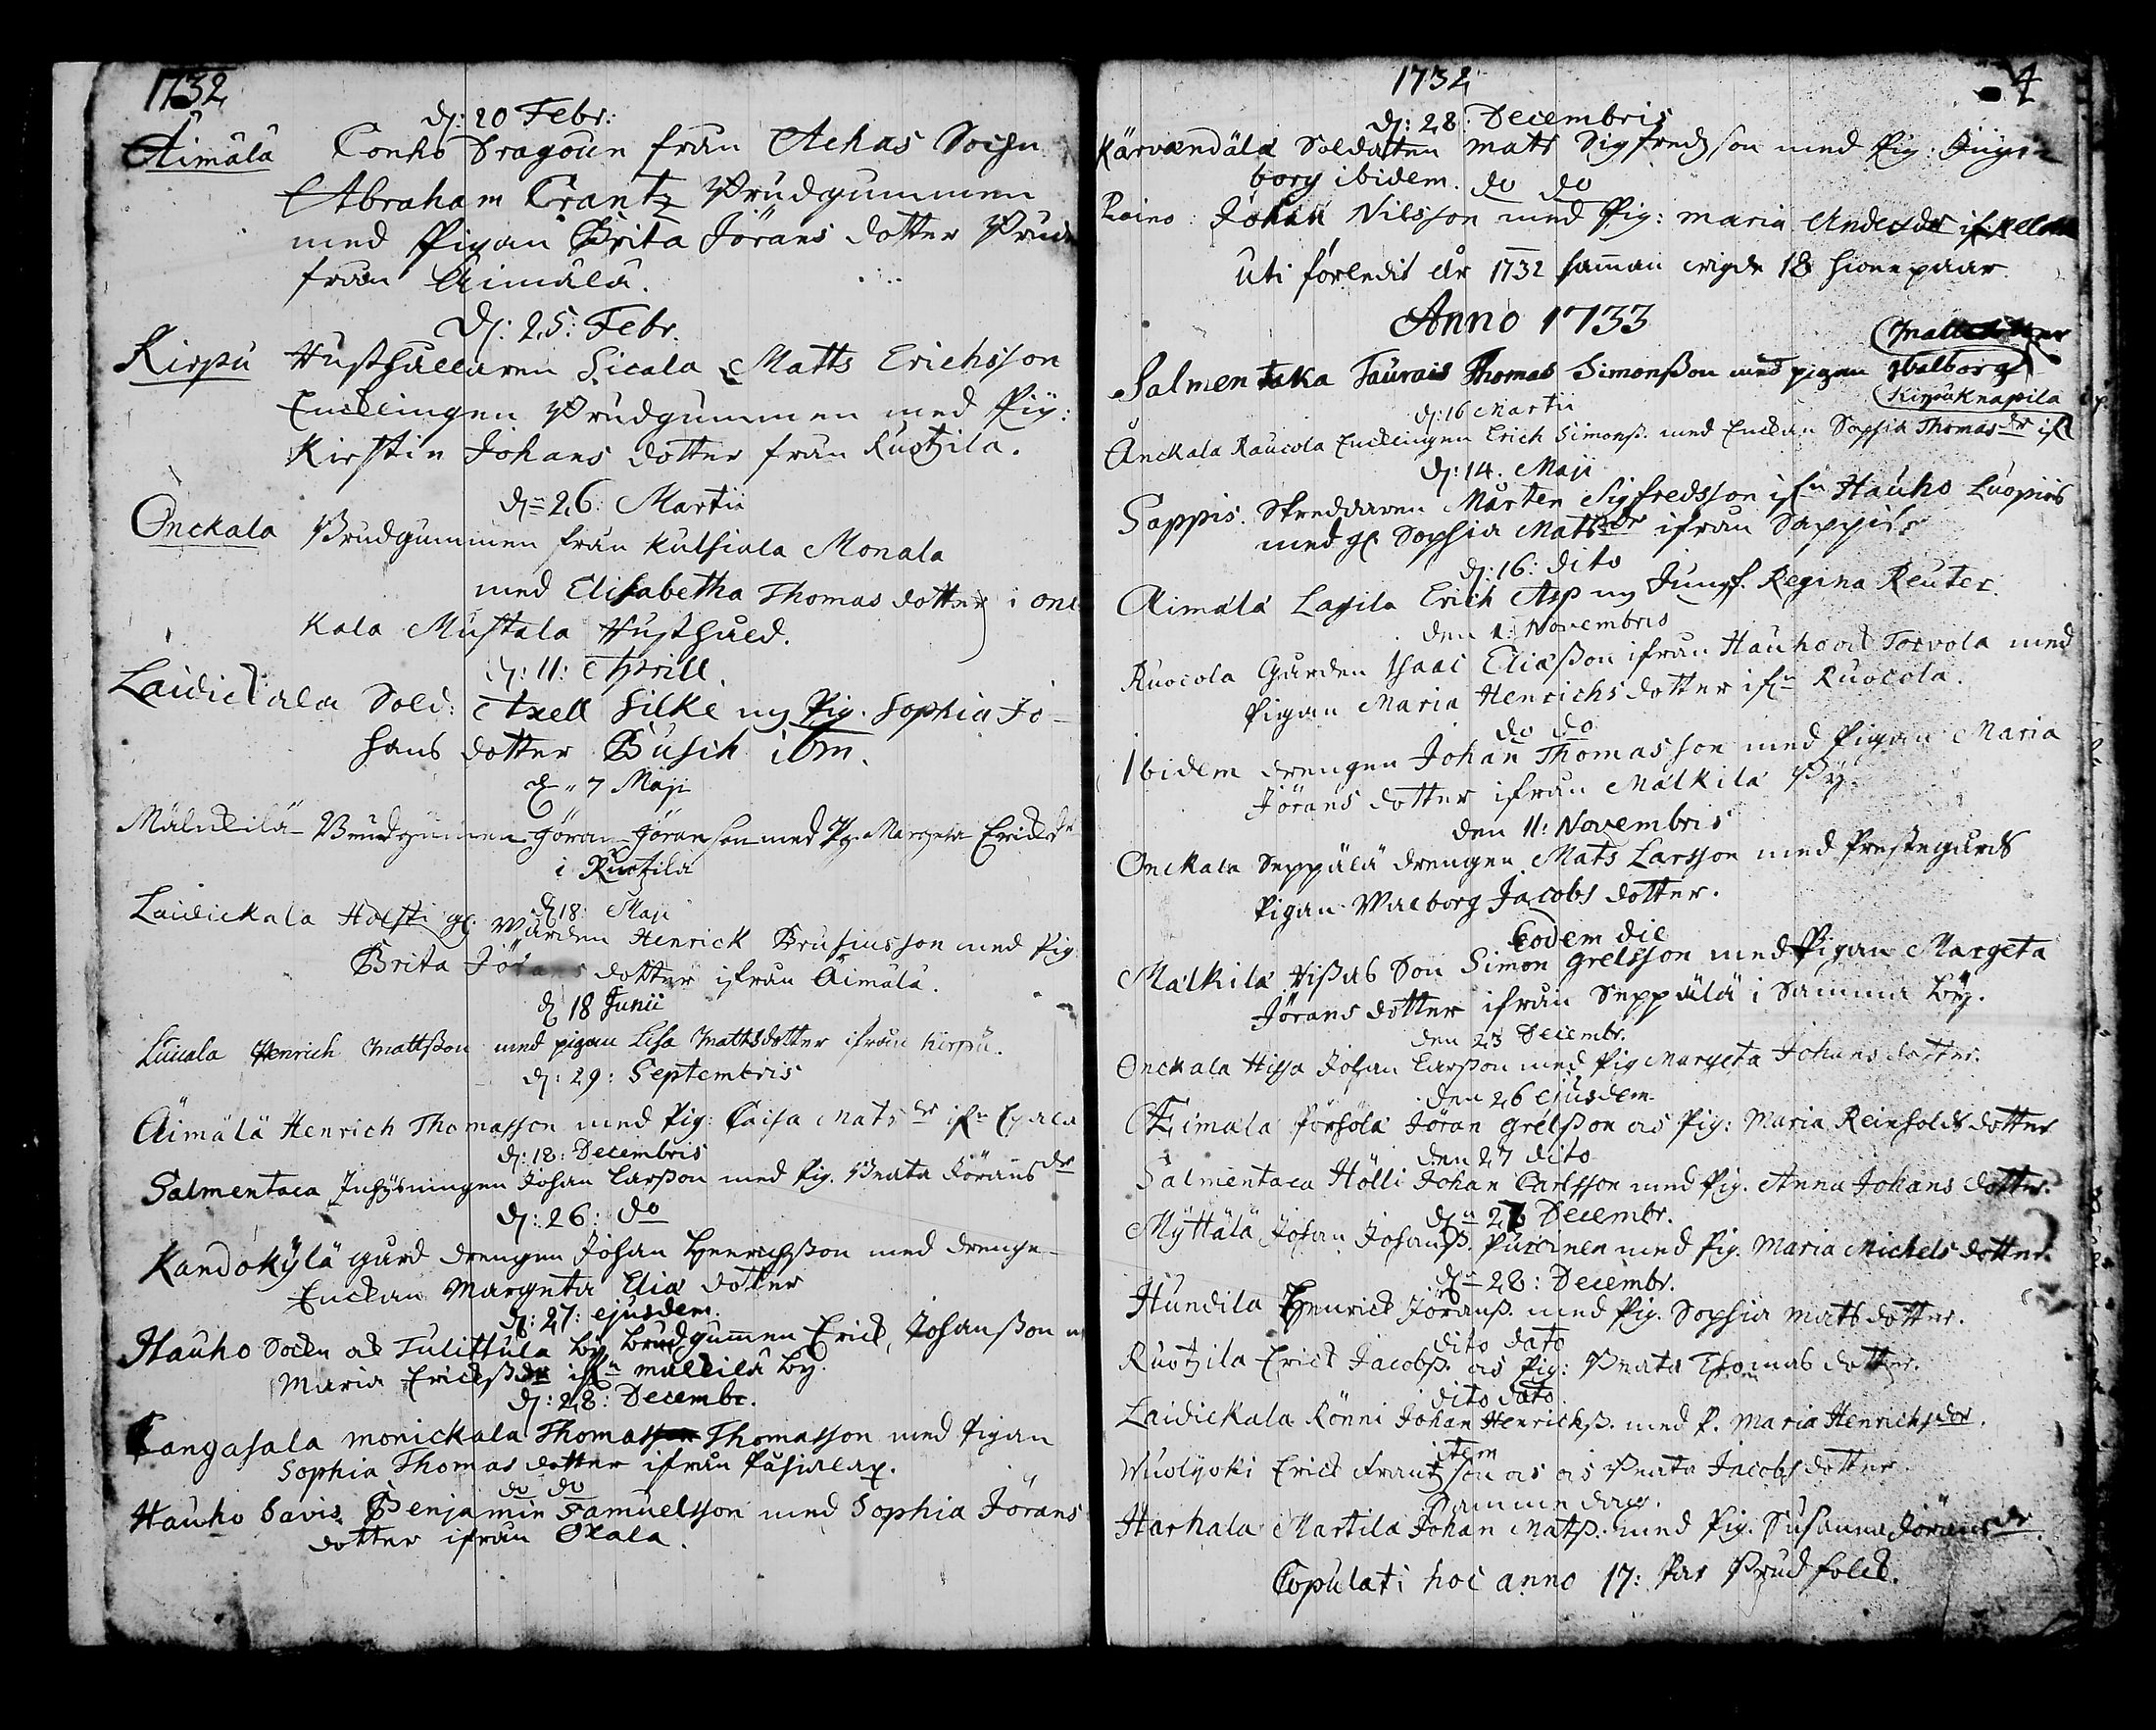 1732
d: 20 Febr:
Äimälä Conho Dragoun från Achas Sochn
Abraham Crantz Brudgummen
med Pigan Brita Jörans dotter Brud
från Äimälä.
d: 25: Febr.
Kirpu Husthållaren Sicala Matts Erichsson
Encklingen Brudgummen med Pig:
Kirstin Johans dotter från Ruotzila.
d: 26: Martii
Onckala Brudgummen från Kulsiala Monala
med Elisabetha Thomas dotter i onc
kala Mustala Husthåld.
d: 11: Aprill.
Laidickala Sold: Axell Silke mz Pig. Sophia Jo-
hans dotter Busch ibm.
d 7 Maji
Mälckilä Brudgummen Göran Göransson med Pig. Margeta Ericksdr
i Ruotzila
d 18: Maji
Laidickala Holsti Wärden Henrick Brusiusson med Pig
Brita Jörans dotter ifrån Äimälä.
d 18 Junii
Henrich Mattsson med pigan Lisa Mattsdotter ifrån kirpu.
d: 29: Septembris
Äimälä Henrich Thomasson med Pig: Caisa Mats dr ifn
d: 18: Decembris
Salmentaca Inhysningen Johan Larsson med Pig. Beata Jörans dr
d: 26: do
Kandokylä gård drengen Johan Henrichsson med drenge-
Enckan Margeta Elia dotter
d: 27: ejusdem.
Hauho Sockn ock Tulittula by brudgummen Erick Johansson m
Maria Ericks dr ifn mälkilä by.
d: 28: Decembr.
Cangasala monickala Thomasson Thomasson med Pigan
Sophia Thomas dotter ifrån
do do
Hauho Savis. Benjamin Samuelsson med Sophia Jörans
dotter ifrån Okala.
1732 4
d: 28: Decembris
Kärvændälä Soldatten Mats Sigfredsson med Pig. Inge-
borg ibidem. do do
Johan Nilsson med Pig: Maria Anders dr
uti förledit år 1732 samman vigde 18 hione paar.
Anno 1733
Salmentaka Taurais Thomas Simonsson med pigan Walborg
Kirpu Knapila
d: 16 Martii
Onckala Raucola Encklingen Erich Simonss. med Enckan Sophia Thomas dr
d: 14. Maji
Sappis. Skreddaren Mårten Sigfredsson ifn Hauho Luopiois
med Sophia Mats dr ifrån Sappis
d: 16: dito
Äimälä Lagila Erich Asp mz Jungf. Regina Reuter.
den 1: Novembris
Ruocola Gården Isaac Eliæsson ifrån Hauho ock Torvola med
Pigan Maria Henrichs dotter ifn Ruocola.
do do
Ibidem drengen Johan Thomasson med Pigan Maria
Jörans dotter ifrån Mälkilä By.
den 11: Novembris
Onckala Seppälä drengen Mats Larsson med Prestegårds
Pigan Walborg Jacobs dotter.
Eodem die
Mälkilä Hissas Son Simon Grelsson med Pigan Margeta
Jörans dotter ifrån Seppälä i Samma by.
den 23 Decembr.
Onckala Hissa Johan Larsson med Pig Margeta Johans dotter.
den 26 ejusdem
Äimälä Pörhölä Jöran Grelsson os Pig: Maria Reinholds dotter
den 27 dito
Salmentaca Hölli Johan Carlsson med Pig. Anna Johans dotter.
d 27 Decembr.
Myttälä Johan Johanss. Purainen med Pig. Maria Michels dotter.
d 28: Decembr.
Hundila Henrick Jöranss. med Pig. Sophia Mats dotter.
dito dato
Ruotzila Erick Jacobss. os Pig: Beata Thomas dotter.
dito dato
Laidickala Rönni Johan Henrichss. med P. Maria Henrichsdor.
item
Wuolyoki Erick Frantzson os Beata Jacobs dotter
Samme dag.
Harhala Martila Johan Matss. med Pig. Susanna Jörans dr.
Copulati hoc anno 17: Par Brud folck.